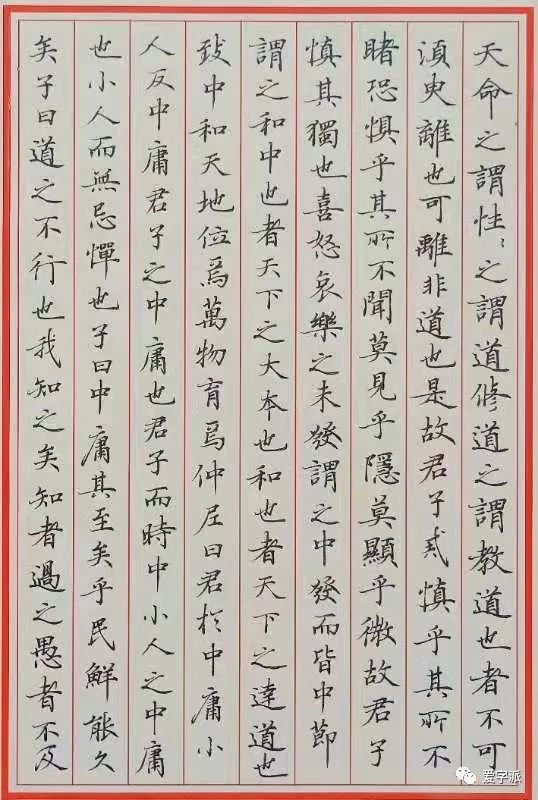 天命之謂性〻之謂道修道之謂教道也者不可
須臾離也可離非道也是故君子戒慎乎其所不
睹恐懼乎其所不聞莫見乎隱莫顯乎微故君子
慎其獨也喜怒哀樂之未發謂之中發而皆中節
謂之和中也者天下之大本也和也者天下之達道也
致中和天地位焉萬物育焉仲尼曰君於中庸小
人反中庸君子之中庸也君子而時中小人之中庸
也小人而無忌憚也子曰中庸其至矣乎民鮮能久
矣子曰道之不行也我知之矣知者過之愚者不及
爱字派